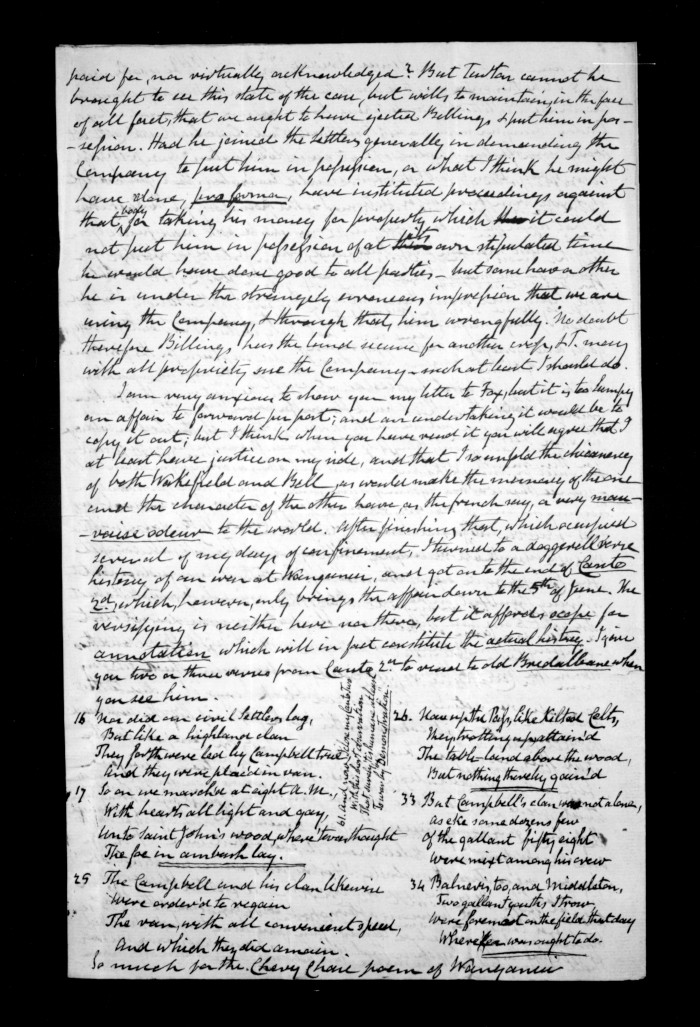 paid for, nor virtually acknowledged? But Tuston cannot be
brought to see this state of the case, but wills to maintain, in the face
of all fact, that we ought to have ejected Billings & put him in pos-
-session. Had he joined the Settlers generally in demanding the
Company to put him in possession, or what I think he might
have done, pro forma, have instituted proceedings against
that body for taking his money for property which it could
not put him in possession of at its own stipulated time
he would have done good to all parties - but somehow or other
he is under the strangely erroneous impression that we are
using the Company, & through that, him wrongfully. No doubt
therefore Billings has the land secure for another crop, & T. may
with all propriety sue the Company - such at least I should do.
I am very anxious to shew you my letter to Fox, but it is too lumpy
an affair to forward per post; and an undertaking it would be to
copy it out; but I think when you have read it you will agree that I
at least have justice on my side, and that I so unfold the chicanery
of both Wakefield and Bell, as would make the memory of the one
and the character of the other have, as the french say, a very mau-
-vaise odeur to the world. After finishing that, which occupied
several of my days of confinement, I turned to a doggerell verse
history of our war at Wanganui, and got on to the end of Canto
2d, which, however, only brings the affair down to the 5th of June. The
versifying is neither here nor there, but it affords scope for
annotation which will in fact constitute the actual history. I give
you two or three verses from Canto 2nd to read to old Bredalbane when
you see him.
16 Nor did our civil Settlers lag,
But like a highland clan
They forth were led by Campbell true,
And they were placed in van.
17 So on we march'd at eight A.M.,
With hearts all light and gay,
Unto Saint John's wood, where 'twas thought
The foe in ambush lay.
25 The Campbell and his clan likewise
Were order'd to regain
The van, with all convenient speed,
And which they did amain.
61. And now I close my canto two
With this short observation
That
Town by Demonstration.
26. Now up the Pass, like Kilted Celts,
They trotting up attain'd
The table-land above the wood,
But nothing thereby gain'd
33 But Campbell's clan was not alone,
as eke some dozens few
Of the gallant fifty eight
Were mixt among his crew
34 Balnevis, too, and Middleton,
Two gallant youths, I trow,
Were foremost on the field that day
Where was ought to do.
So much for the Chevy Chase poem of Wanganui